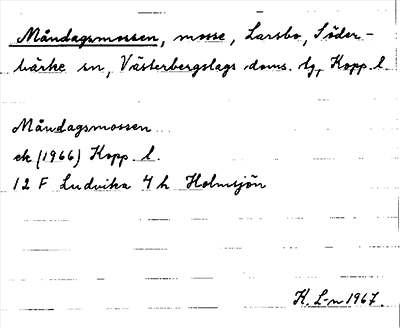 Måndagsmossen, mosse, Larsbo, Söder-
bärke sn, Västerbergslags doms. lg, Kopp. l.
Måndagsmossen
ek (1966) Kopp. l.
12 F Ludvika 4 h Holmsjön
K. L-n 1967.